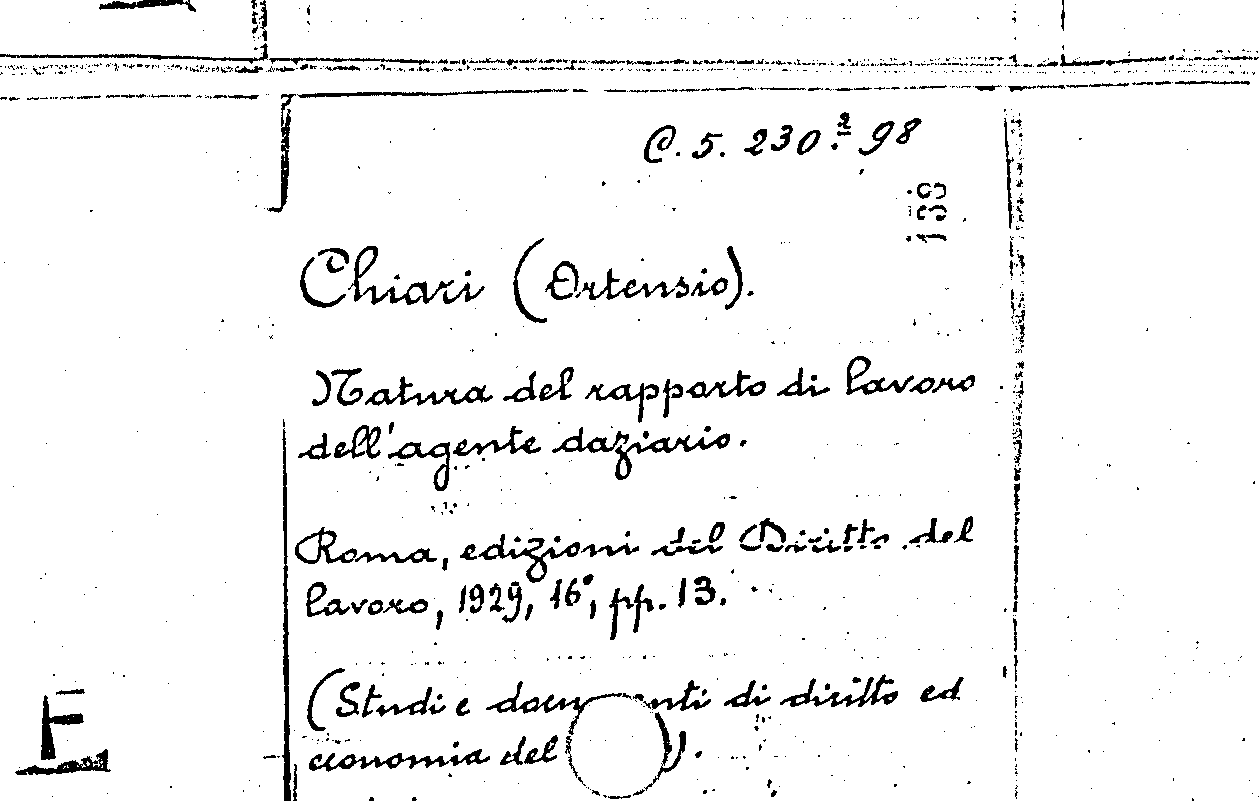 C. 5. 230.² 98
139
Chiari (Ortensio).
Natura del rapporto di lavoro
dell'agente daziario.
Roma, edizioni del Diritto del
lavoro, 1929, 16°, pp. 13.
(Studi e documenti di diritto ed
economia del ).
E